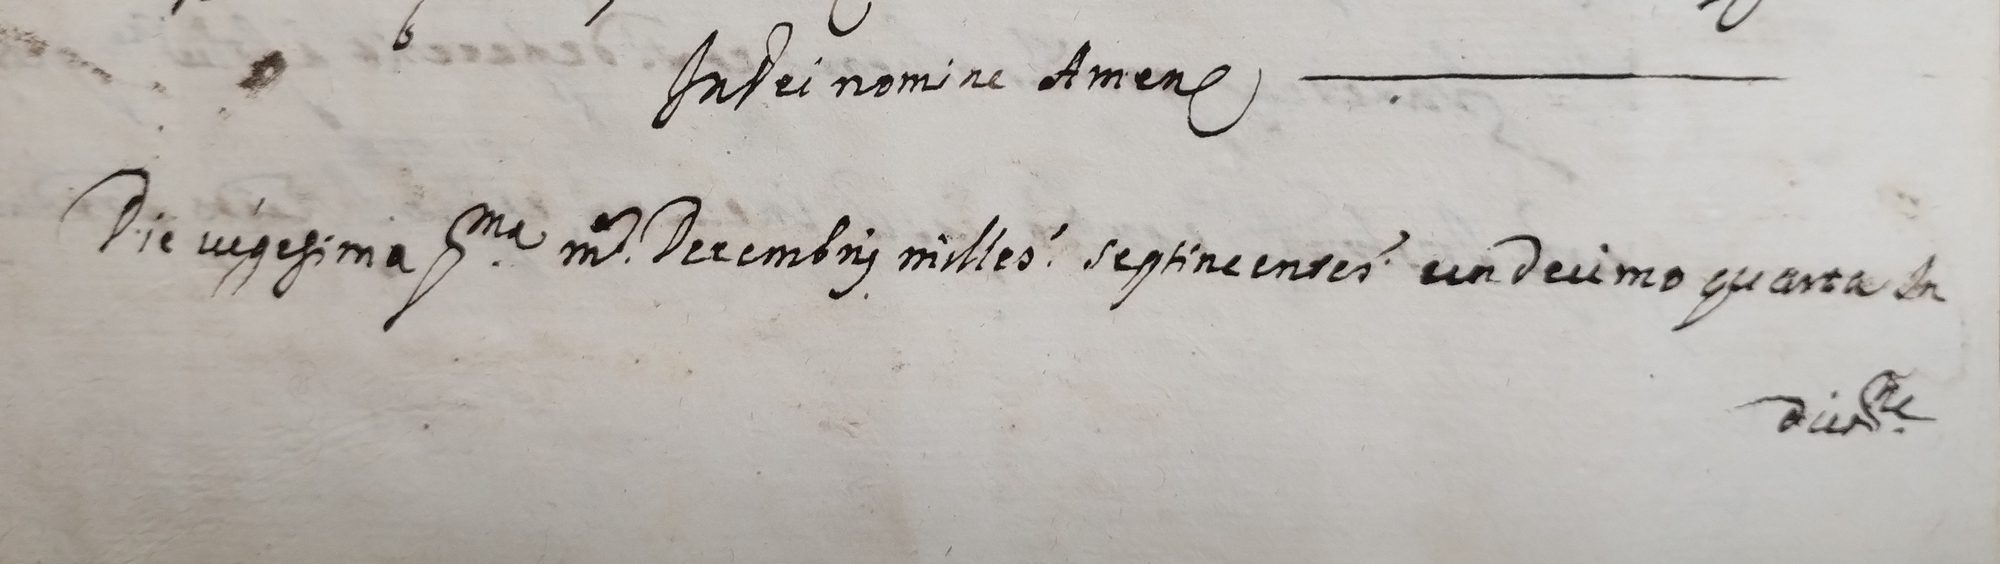 In Dei nomine Amen
Die uigesima pma ms. Decembris milles: septincentes: undecimo quarta In
dicne